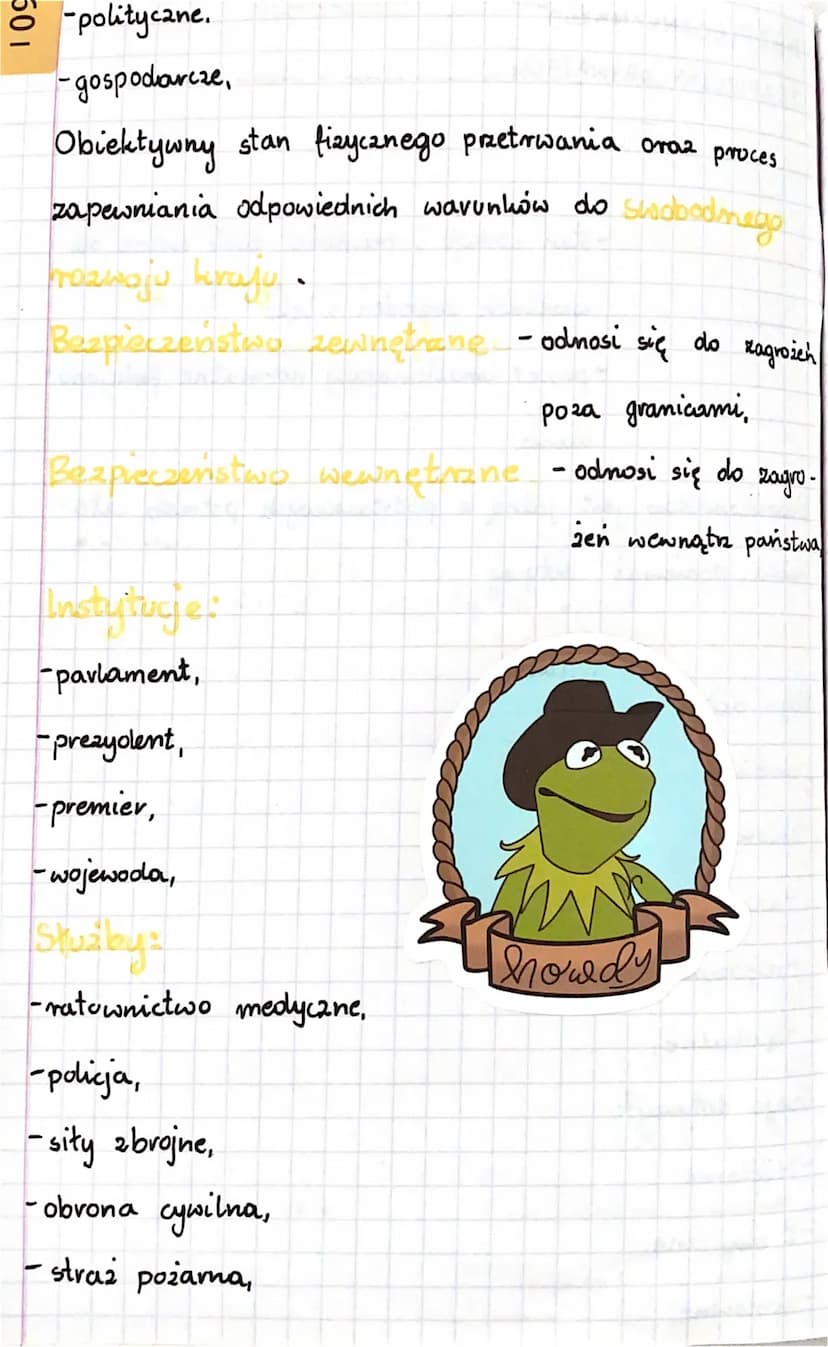 -polityczne.
-gospodarcze,
Obiektywny stan fizycznego przetrwania oraz proces
zapewniania odpowiednich warunków do swobodnego
rozwoju kraju.
Bezpieczeństwo zewnętrzne - odnosi się do zagrożeń
poza granicami,
Bezpieczeństwo wewnętrzne - odnosi się do zagro-
żeń wewnątrz państwa,
Instytucje:
-parlament,
-prezydent,
-premier,
-wojewoda,
howdy
Służby:
-ratownictwo medyczne,
-policja,
-siły zbrojne,
-obrona cywilna,
-straż pożarna,